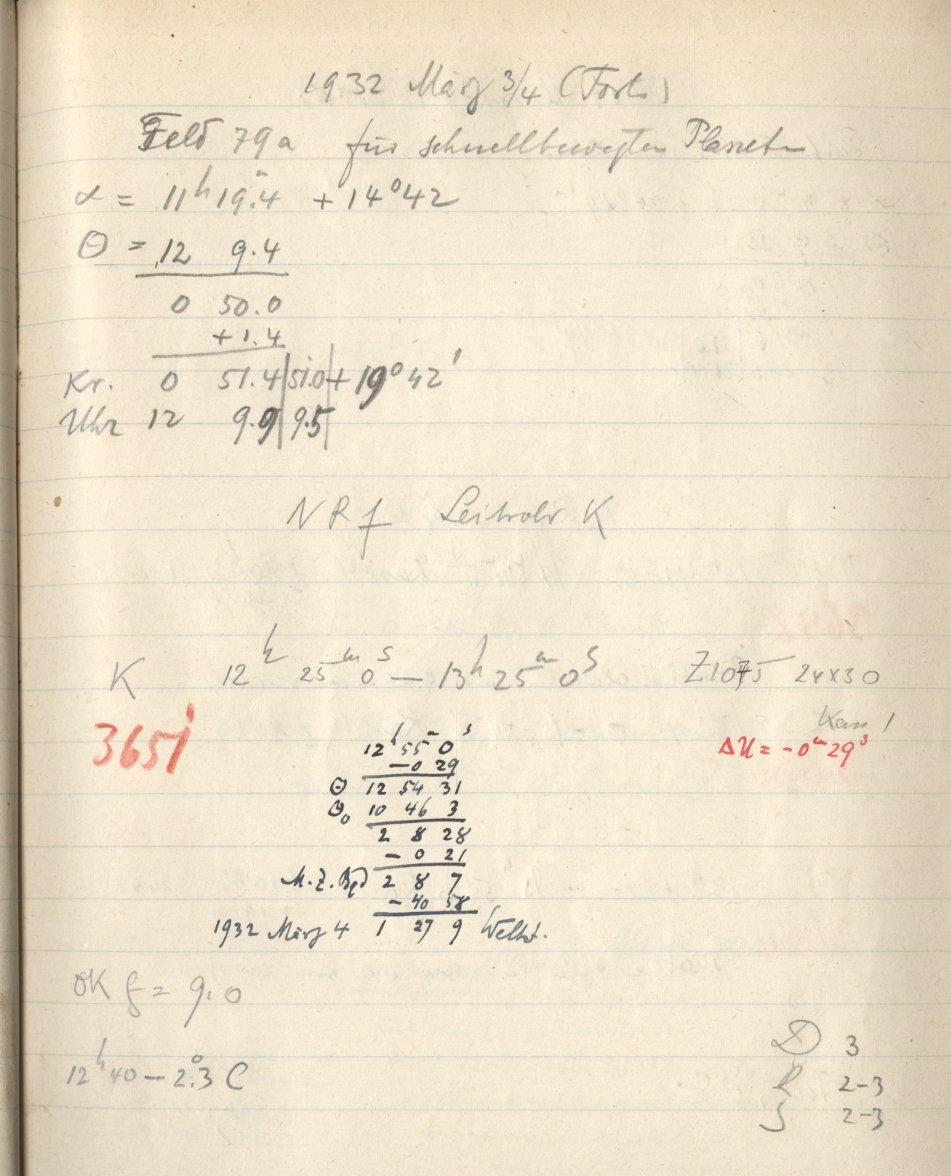 1932 März 3/4 (Forts)
Feld 79a für schnellbewegten Planeten
α = 11h 19m.4 + 14° 42
Θ = 12 9.4
0 50.0
+ 1.4
Kr. 0 51.4 | 51.0 | + 19° 42'
Uhr 12 9.9 | 9.5 |
NRf Leitrohr K
K 12h 25m 0s — 13h 25m 0s Z1075 24x30
Kass 1
3651 ΔU = - 0m 29s
12h 55m 0s
- 0 29
Θ 12 54 31
Θ0 10 46 3
2 8 28
- 0 21
M.Z. Bgd 2 8 7
- 40 58
1932 März 4 1 27 9 Weltzt.
OK f = 9.0
12h 40 - 2°.3 C
D 3
2-3
2-3